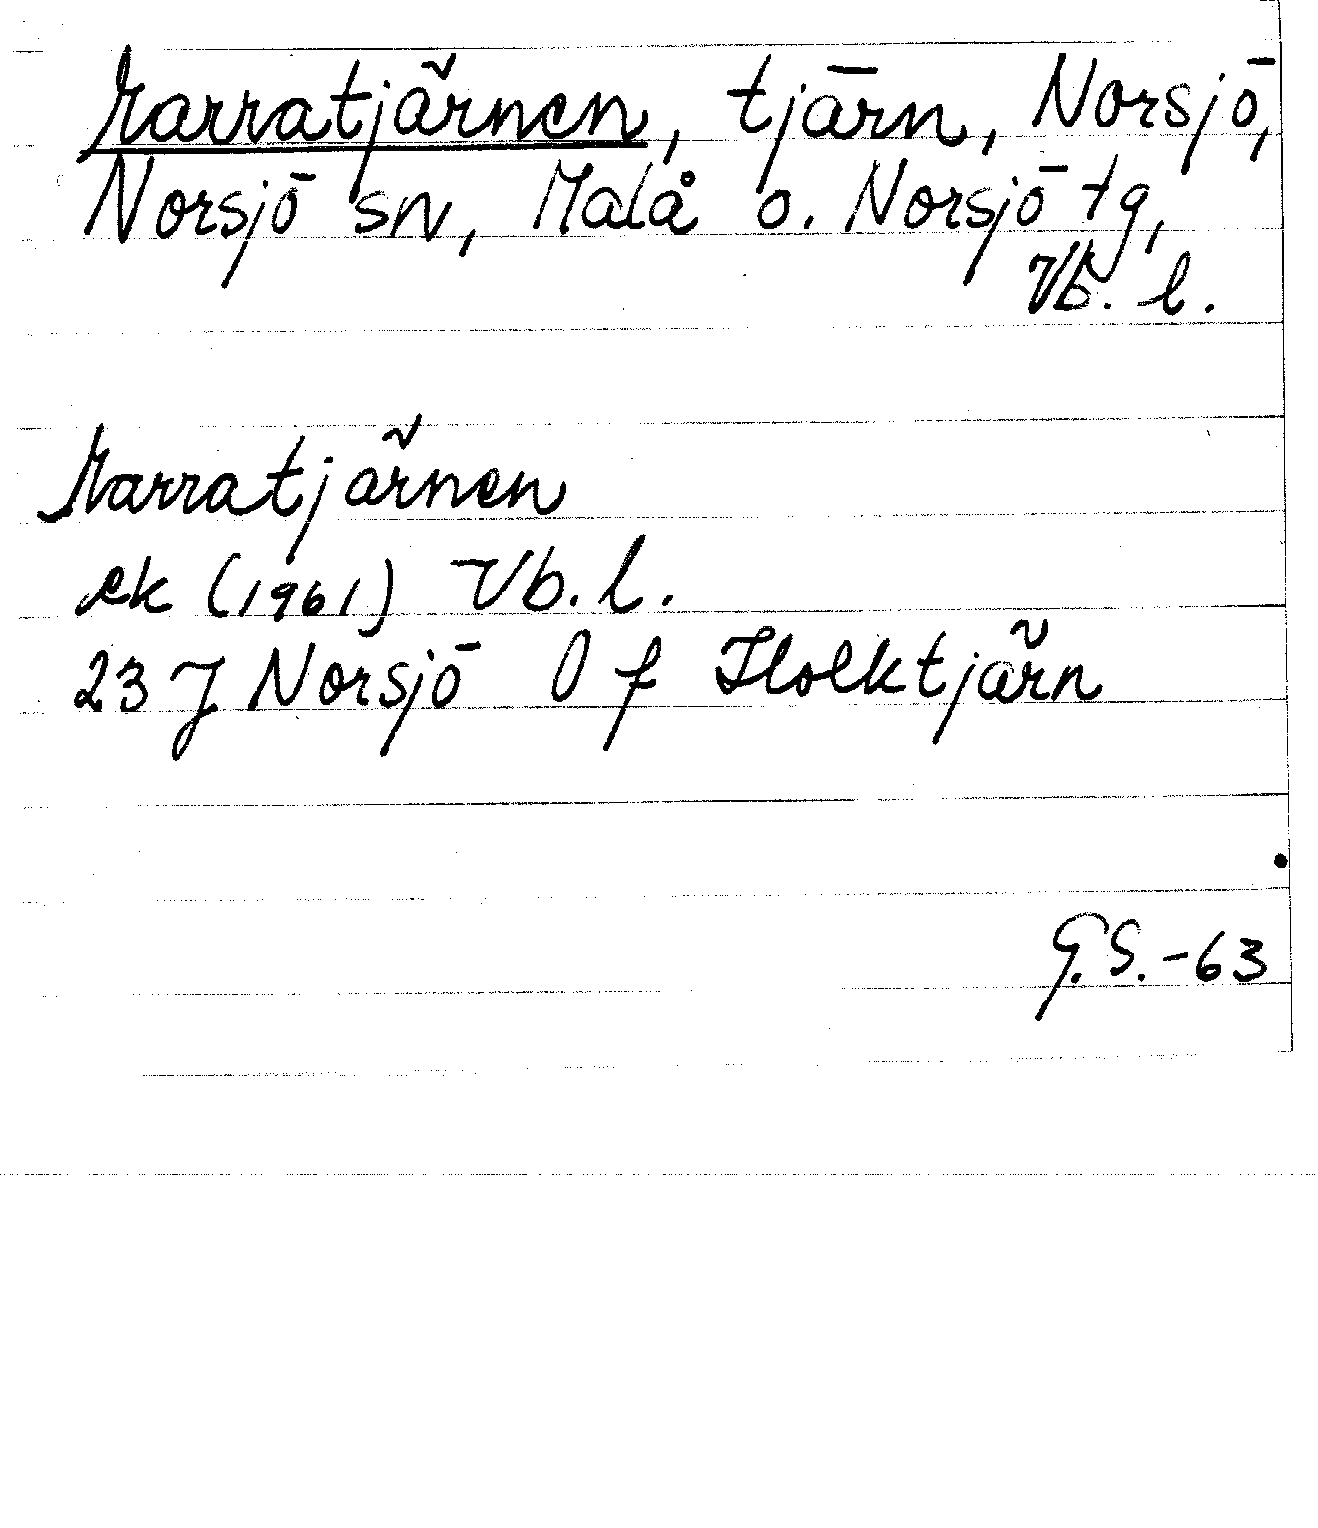 Marratjärnen, tjärn, Norsjö,
Norsjö sn, Malå o. Norsjö tg,
Vb. l.
Marratjärnen
ek (1961) Vb. l.
23 J Norsjö 0 f Holktjärn
G.S.-63